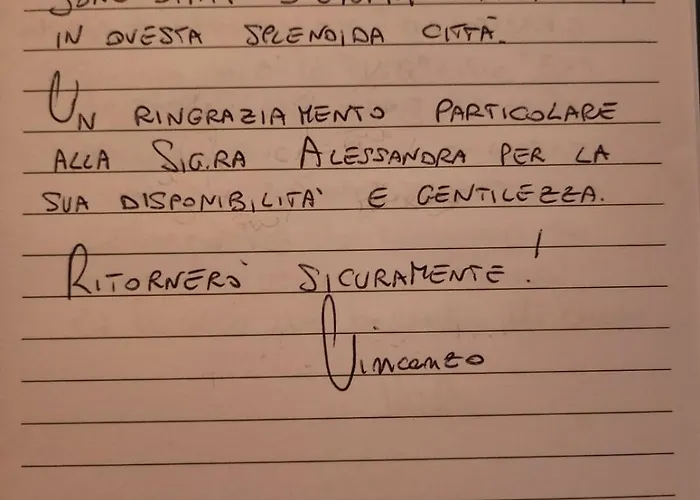 IN QUESTA SPLENDIDA CITTÀ.
UN RINGRAZIAMENTO PARTICOLARE
ALLA SIG.RA ALESSANDRA PER LA
SUA DISPONIBILITA' E GENTILEZZA.
RITORNERO' SICURAMENTE!
Vincenzo